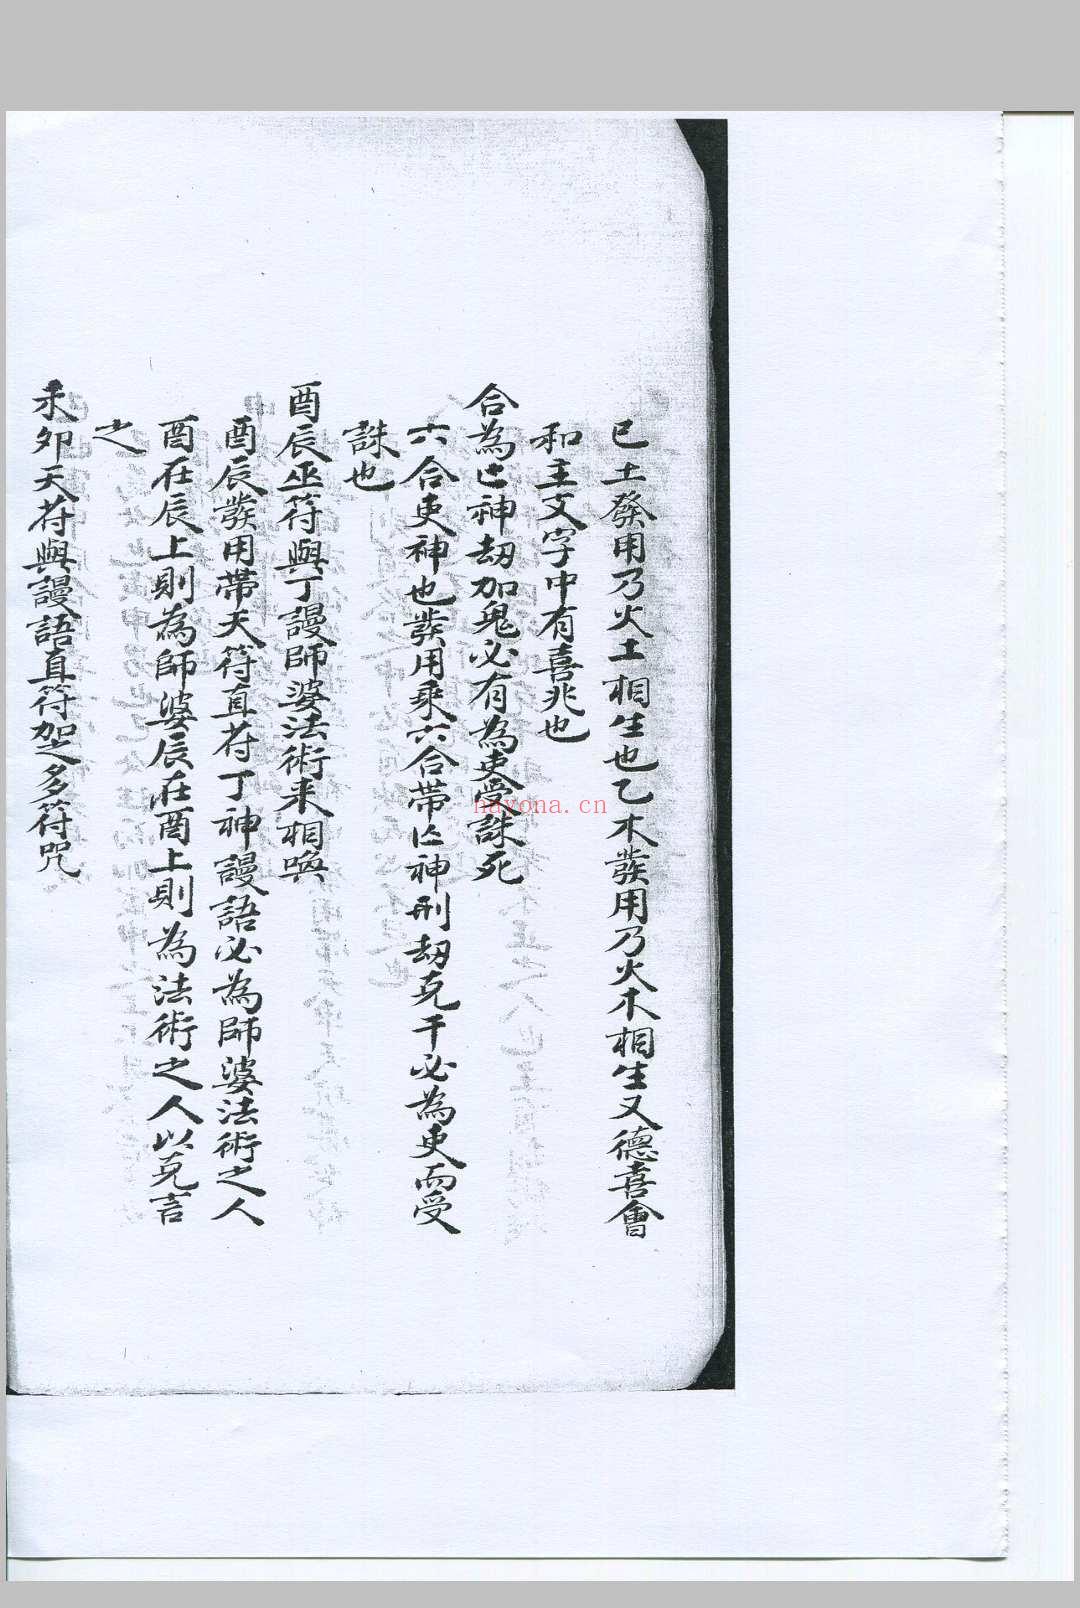 已土發用乃火土相生也乙木發用乃火木相生又德喜會
和主文字中有喜兆也
合為亡神劫加鬼必有為吏受誅死
六合吏神也發用乘六合帶亡神刑劫克干必為吏而受
誅也
酉辰巫符與丁謾師婆法術来相喚
酉辰發用帶天符直符丁神謾語必為師婆法術之人
酉在辰上則為師婆辰在酉上則為法術之人以克言
之
未卯天符與謾語直符加之多符咒
nayona.cn